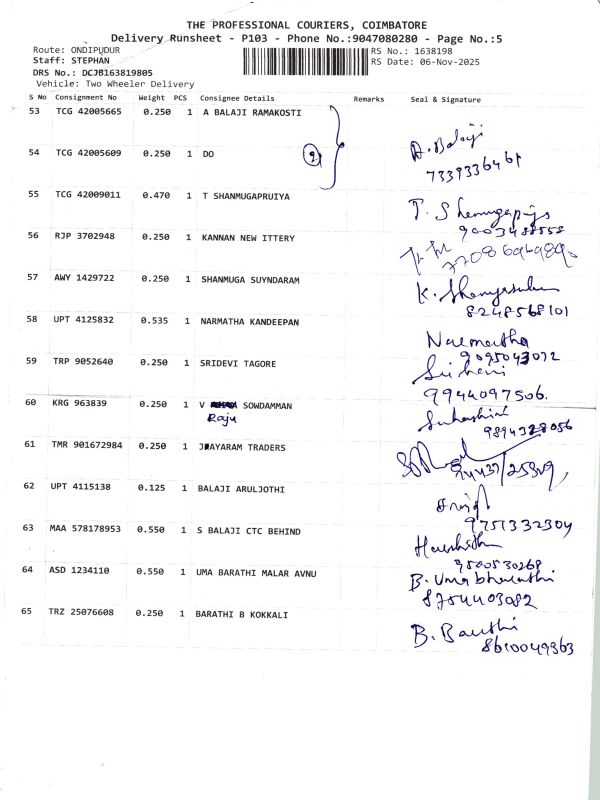 THE PROFESSIONAL COURIERS, COIMBATORE
Delivery Runsheet - P103 - Phone No.:9047080280 - Page No.:5
Route: ONDIPUDUR RS No.: 1638198
Staff: STEPHAN RS Date: 06-Nov-2025
DRS No.: DCJB163819805
Vehicle: Two Wheeler Delivery
S No Consignment No Weight PCS Consignee Details Remarks Seal & Signature
53 TCG 42005665 0.250 1 A BALAJI RAMAKOSTI
54 TCG 42005609 0.250 1 DO 2 A. Balaji
7339336461
55 TCG 42009011 0.470 1 T SHANMUGAPRUIYA
9003488558
56 RJP 3702948 0.250 1 KANNAN NEW ITTERY
57 AWY 1429722 0.250 1 SHANMUGA SUYNDARAM K.
8248568101
58 UPT 4125832 0.535 1 NARMATHA KANDEEPAN Narmatha
9095043072
59 TRP 9052640 0.250 1 SRIDEVI TAGORE
9944097506.
60 KRG 963839 0.250 1 V SOWDAMMAN
Raju
9894328056
61 TMR 901672984 0.250 1 JAYARAM TRADERS
62 UPT 4115138 0.125 1 BALAJI ARULJOTHI
9751332304
63 MAA 578178953 0.550 1 S BALAJI CTC BEHIND
9500530268
64 ASD 1234110 0.550 1 UMA BARATHI MALAR AVNU B. Umabharathi
8754403082
65 TRZ 25076608 0.250 1 BARATHI B KOKKALI B. Barathi
8610049363